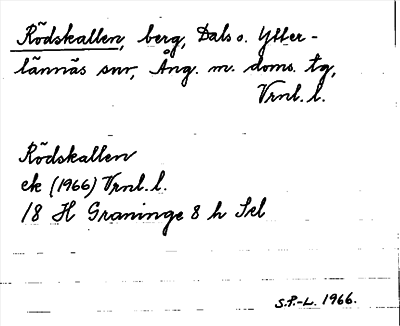 Rödskallen, berg, Dals o. Ytter-
lännäs snr, Ång. m. doms. tg,
Vrnl. l.
Rödskallen
ek (1966) Vrnl. l.
18 H Graninge 8 h Sel
S.P.-L. 1966.